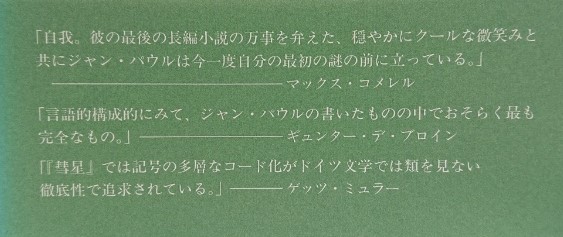 「自我。彼の最後の長編小説の万事を弁えた、穏やかにクールな微笑みと
共にジャン・パウルは今一度自分の最初の謎の前に立っている。」
――――――――――マックス・コメレル
「言語的構成的にみて、ジャン・パウルの書いたものの中でおそらく最も
完全なもの。」――――――ギュンター・デ・ブロイン
「『彗星』では記号の多層なコード化がドイツ文学では類を見ない
徹底性で追求されている。」―――ゲッツ・ミュラー